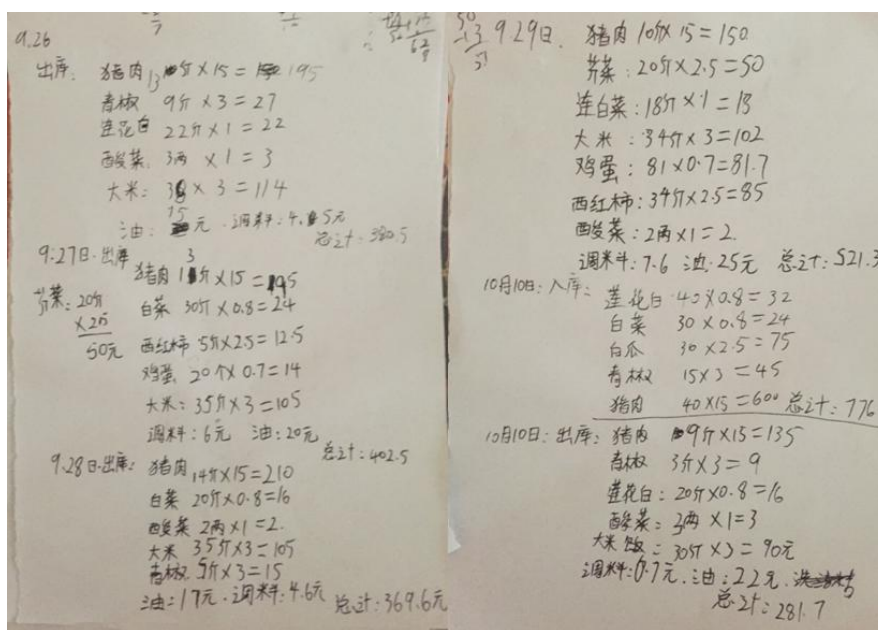 9.26
出库: 猪肉 13斤×15=195
青椒 9斤×3=27
莲花白 22斤×1=22
酸菜: 3两×1=3
大米: 38×3=114
油: 15元. 调料: 4.5元
总计: 380.5
9.27日.出库
猪肉 13斤×15=195
芥菜: 20斤
×2.5
50元
白菜 30斤×0.8=24
西红柿 5斤×2.5=12.5
鸡蛋 20个×0.7=14
大米: 35斤×3=105
调料: 6元 油: 20元
总计: 402.5
9.28日.出库: 猪肉 14斤×15=210
白菜 20斤×0.8=16
酸菜 2两×1=2.
大米 35斤×3=105
青椒 5斤×3=15
油: 17元. 调料: 4.6元 总计: 369.6元
9.29日. 猪肉 10斤×15=150
芥菜: 20斤×2.5=50
连白菜: 18斤×1=18
大米: 34斤×3=102
鸡蛋: 81×0.7=81.7
西红柿: 34斤×2.5=85
酸菜: 2两×1=2.
调料: 7.6 油: 25元 总计: 521.3
10月10日: 入库: 莲花白 40×0.8=32
白菜 30×0.8=24
白瓜 30×2.5=75
青椒 15×3=45
猪肉 40×15=600 总计: 776
10月10日: 出库: 猪肉 9斤×15=135
青椒 3斤×3=9
莲花白: 20斤×0.8=16
酸菜: 3两×1=3
大米: 30斤×3=90元
调料: 6.7元. 油: 22元.
总计: 281.7